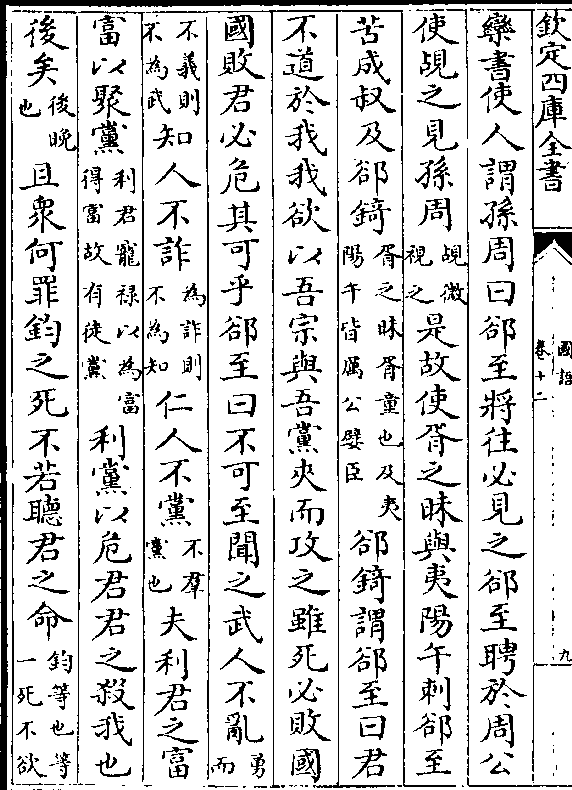 欽定四庫全書
國語
卷十二
九
欒書使人謂孫周曰郤至將往必見之郤至聘於周公
使覘之見孫周覘微視之是故使胥之昧與夷陽午刺郤至
苦成叔及郤錡胥之昧胥童也及夷陽午皆厲公嬖臣郤錡謂郤至曰君
不道於我我欲以吾宗與吾黨夾而攻之雖死必敗國
國敗君必危其可乎郤至曰不可至聞之武人不亂勇而
不義則不為武知人不詐為詐則不為知仁人不黨不羣黨也夫利君之富
富以聚黨利君寵祿以為富得富故有徒黨利黨以危君君之殺我也
後矣後晚也且衆何罪鈞之死不若聽君之命鈞等也等一死不欲